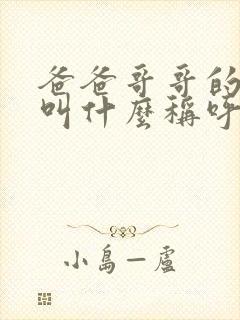 爸爸哥哥的
叫什麼稱呼
小島—盧